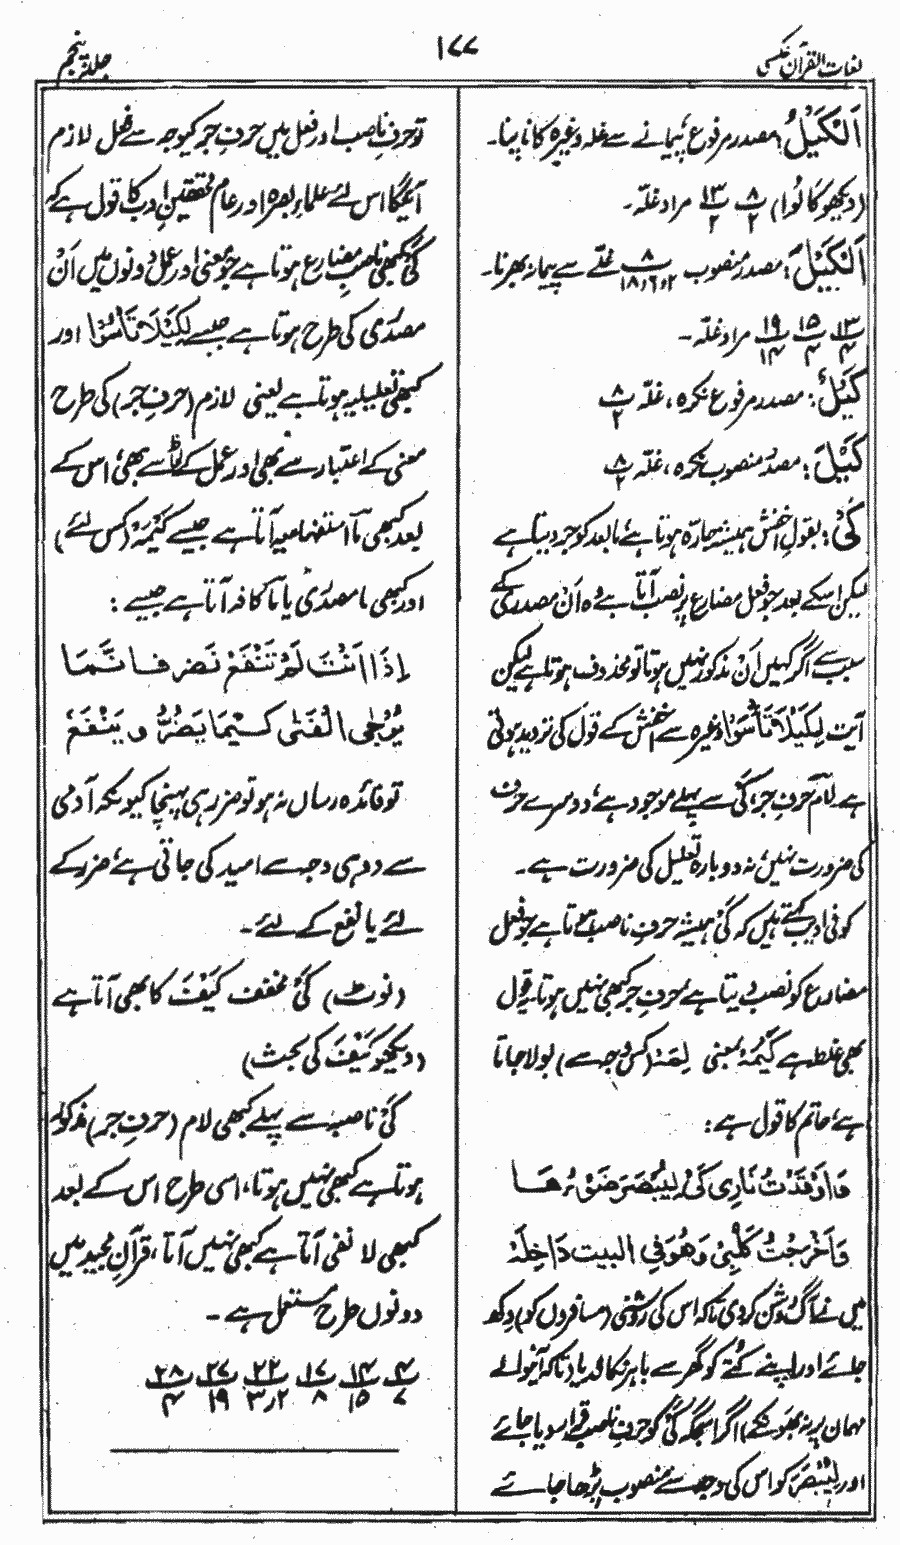 لغات القرآن عکسی
۱۷۷
جلد پنجم
اَلْکَیْلُ: مصدر مرفوع، پیمانے سے غلہ وغیرہ کا ناپنا۔
(دیکھو کَالُوْا) ۸/۲ ۱۳/۲ مراد غلّہ۔
اَلْکَیْلَ: مصدر منصوب ۸/۱۸،۶،۲ غلّے سے پیمانہ بھرنا۔
۱۳/۴ ۱۵/۴ ۱۹/۱۴ مراد غلّہ۔
کَیْلٌ: مصدر مرفوع نکرہ، غلّہ ۸/۲
کَیْلَ: مصدر منصوب نکرہ، غلّہ ۸/۲
کَیْ: بقولِ اخفش ہمیشہ جارّہ ہوتا ہے، مابعد کو جر دیتا ہے
لیکن اسکے بعد جو فعل مضارع پر نصب آتا ہے وہ اَنْ مصدری کے
سبب سے اگر کہیں اَنْ مذکور نہیں ہوتا تو محذوف ہوتا ہے لیکن
آیت لِکَیْلَا تَأْسَوْا وغیرہ سے اخفش کے قول کی تردید ہوتی
ہے۔ لام حرفِ جر، کَیْ سے پہلے موجود ہے، دوسرے حرف
کی ضرورت نہیں، نہ دوبارہ تعلیل کی ضرورت ہے۔
کوفی ادیب کہتے ہیں کہ کَیْ ہمیشہ حرفِ ناصب ہوتا ہے جو فعل
مضارع کو نصب دیتا ہے، حرفِ جر کبھی نہیں ہوتا۔ یہ قول
بھی غلط ہے کَیْمَهْ بمعنی لِمَهْ (کس وجہ سے) بولا جاتا
ہے، حاتم کا قول ہے:
فَاَوْقَدْتُ نَارِی کَیْ لِیُبْصَرَ ضَوْءُهَا
وَاَخْرَجْتُ کَلْبِیْ وَهُوَ فِی البیت دَاخِلُهْ
میں نے آگ روشن کر دی تاکہ اس کی روشنی (مسافروں کو) دکھ
جائے اور اپنے کتے کو گھر سے باہر نکال دیا (تاکہ آنیوالے
مہمان پر نہ بھونکے) اگر اسجگہ کَیْ کو حرفِ ناصب قرار دیا جائے
اور لِیُبْصَرَ کو اس کی وجہ سے منصوب پڑھا جائے
تو حرفِ ناصب اور فعل میں حرفِ جر کیوجہ سے فصل لازم
آئیگا اس لئے علماءِ بصرہ اور عام محققینِ ادب کا قول ہے کہ
کَیْ کبھی ناصبِ مضارع ہوتا ہے جو معنی اور عمل دونوں میں اَنْ
مصدری کی طرح ہوتا ہے جیسے لِکَیْلَا تَأْسَوْا اور
کبھی تعلیلیہ ہوتا ہے یعنی لازم (حرفِ جر) کی طرح
معنی کے اعتبار سے بھی اور عمل کے لحاظ سے بھی، اس کے
بعد کبھی مَا استفہامیہ آتا ہے جیسے کَیْمَهْ (کس لئے)
اور کبھی ما مصدری یا مَا کافہ آتا ہے جیسے:
اِذَا اَنْتَ لَمْ تَنْفَعْ فَضُر فانَّمَا
یُرْجٰی الْفَتٰی کَیْمَا یَضُرُّ و یَنْفَعُ
تو فائدہ رساں نہ ہو تو ضرر ہی پہنچا کیونکہ آدمی
سے دو ہی وجہ سے امید کی جاتی ہے، ضرر کے
لئے یا نفع کے لئے۔
(نوٹ) کَیْ مخفف کَیْفَ کا بھی آتا ہے
(دیکھو کَیْفَ کی بحث)
کَیْ ناصبہ سے پہلے کبھی لام (حرفِ جر) مذکور
ہوتا ہے کبھی نہیں ہوتا، اسی طرح اس کے بعد
کبھی لا نفی آتا ہے کبھی نہیں آتا، قرآنِ مجید میں
دونوں طرح مستعمل ہے۔
۴/۷ ۱۴/۱۵ ۱۷/۸ ۲۲/۳،۲ ۲۷/۱۹ ۲۸/۴